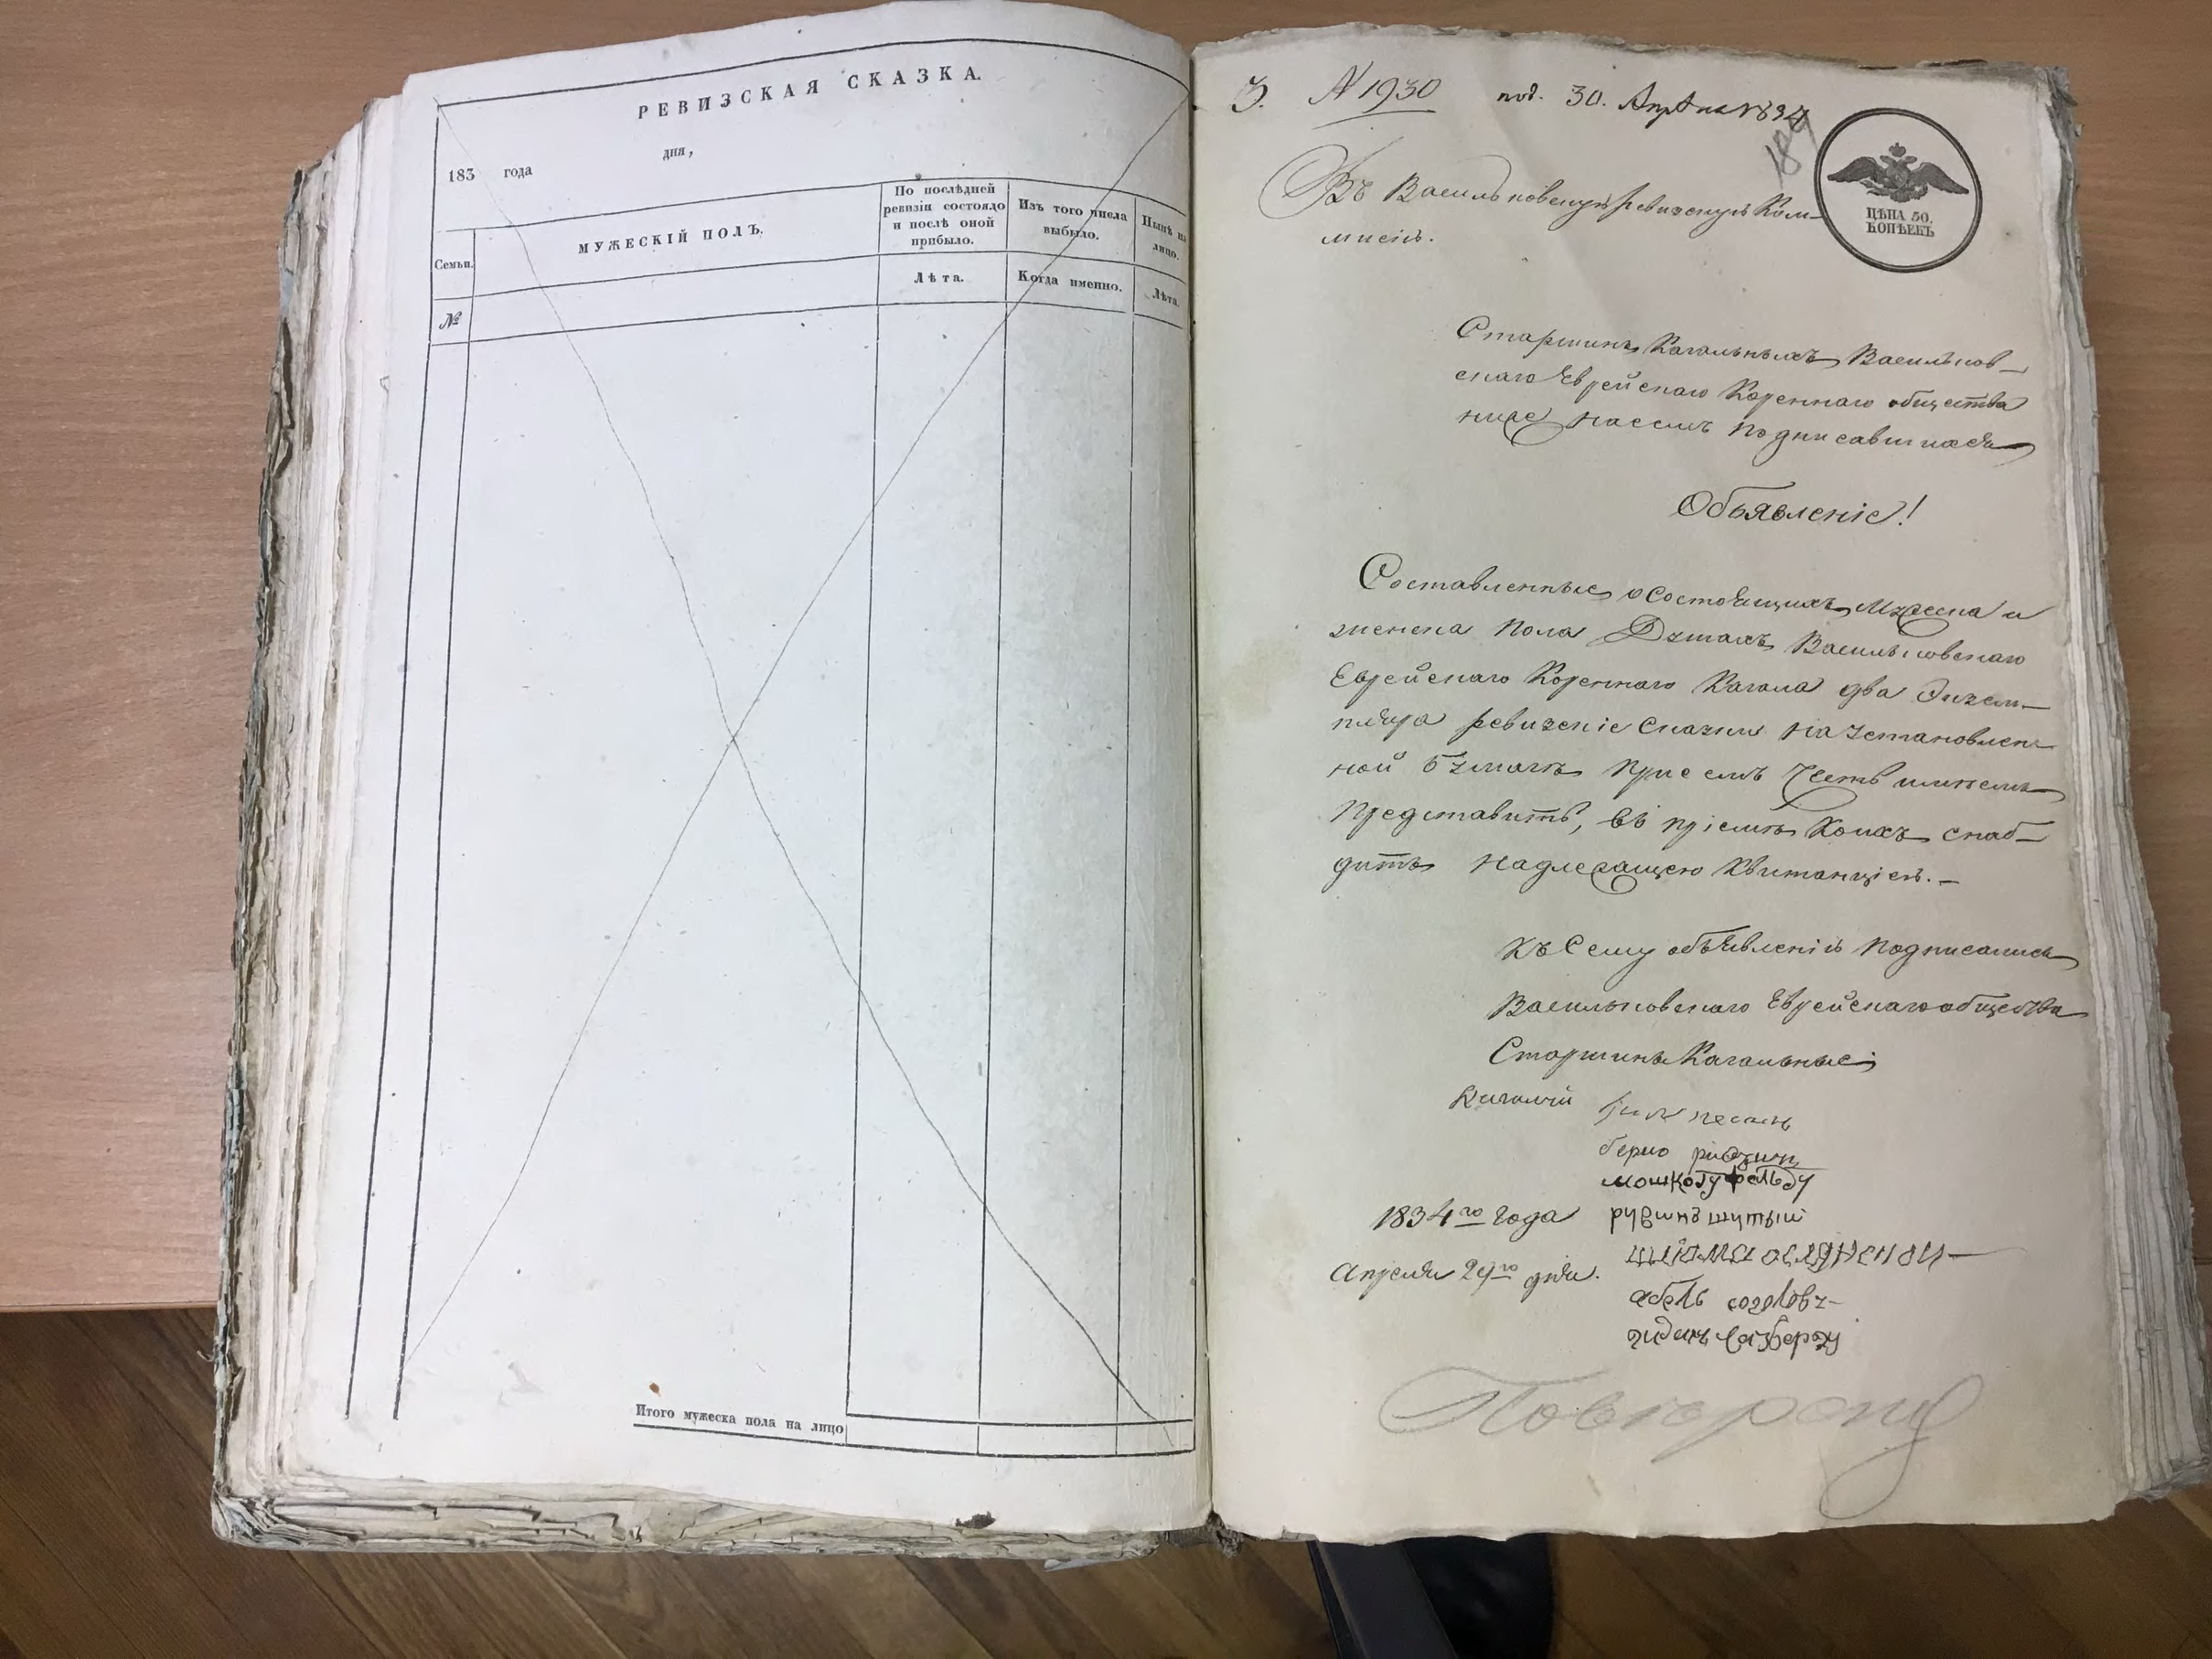 РЕВИЗСКАЯ СКАЗКА.
183 года дня,
Семьи.
МУЖЕСКІЙ ПОЛЪ.
По послѣдней ревизіи состояло и послѣ оной прибыло.
Изъ того числа выбыло.
Нынѣ на лицо.
№
Лѣта.
Когда именно.
Лѣта.
Итого мужеска пола на лицо
3. N 1930 под. 30. Апрѣля 1834
189
ЦѢНА 50.
КОПѢЕКЪ
Въ Васильковскую ревизскую Ком-
мисію.
Старшинъ Кагальныхъ Васильков-
скаго Еврейскаго Кореннаго общества
ниже сего подписавшихся
Объявленіе!
Составленные о состоящихъ Мужеска и
женска пола Душахъ Васильковскаго
Еврейскаго Кореннаго Кагала два Экзем-
пляра ревизскіе Сказки на установлен-
ной бумагѣ при семъ Честь имѣемъ
Представить, въ пріемѣ Коихъ снаб-
дить надлежащею Квитанціею.-
Къ Сему объявленію подписались
Васильковскаго Еврейскаго общества
Старшины Кагальные
Кагалий
берко
мошко гуфельду
1834го года рувинъ шутый
Апреля 29го дня.
абель
Повѣрену